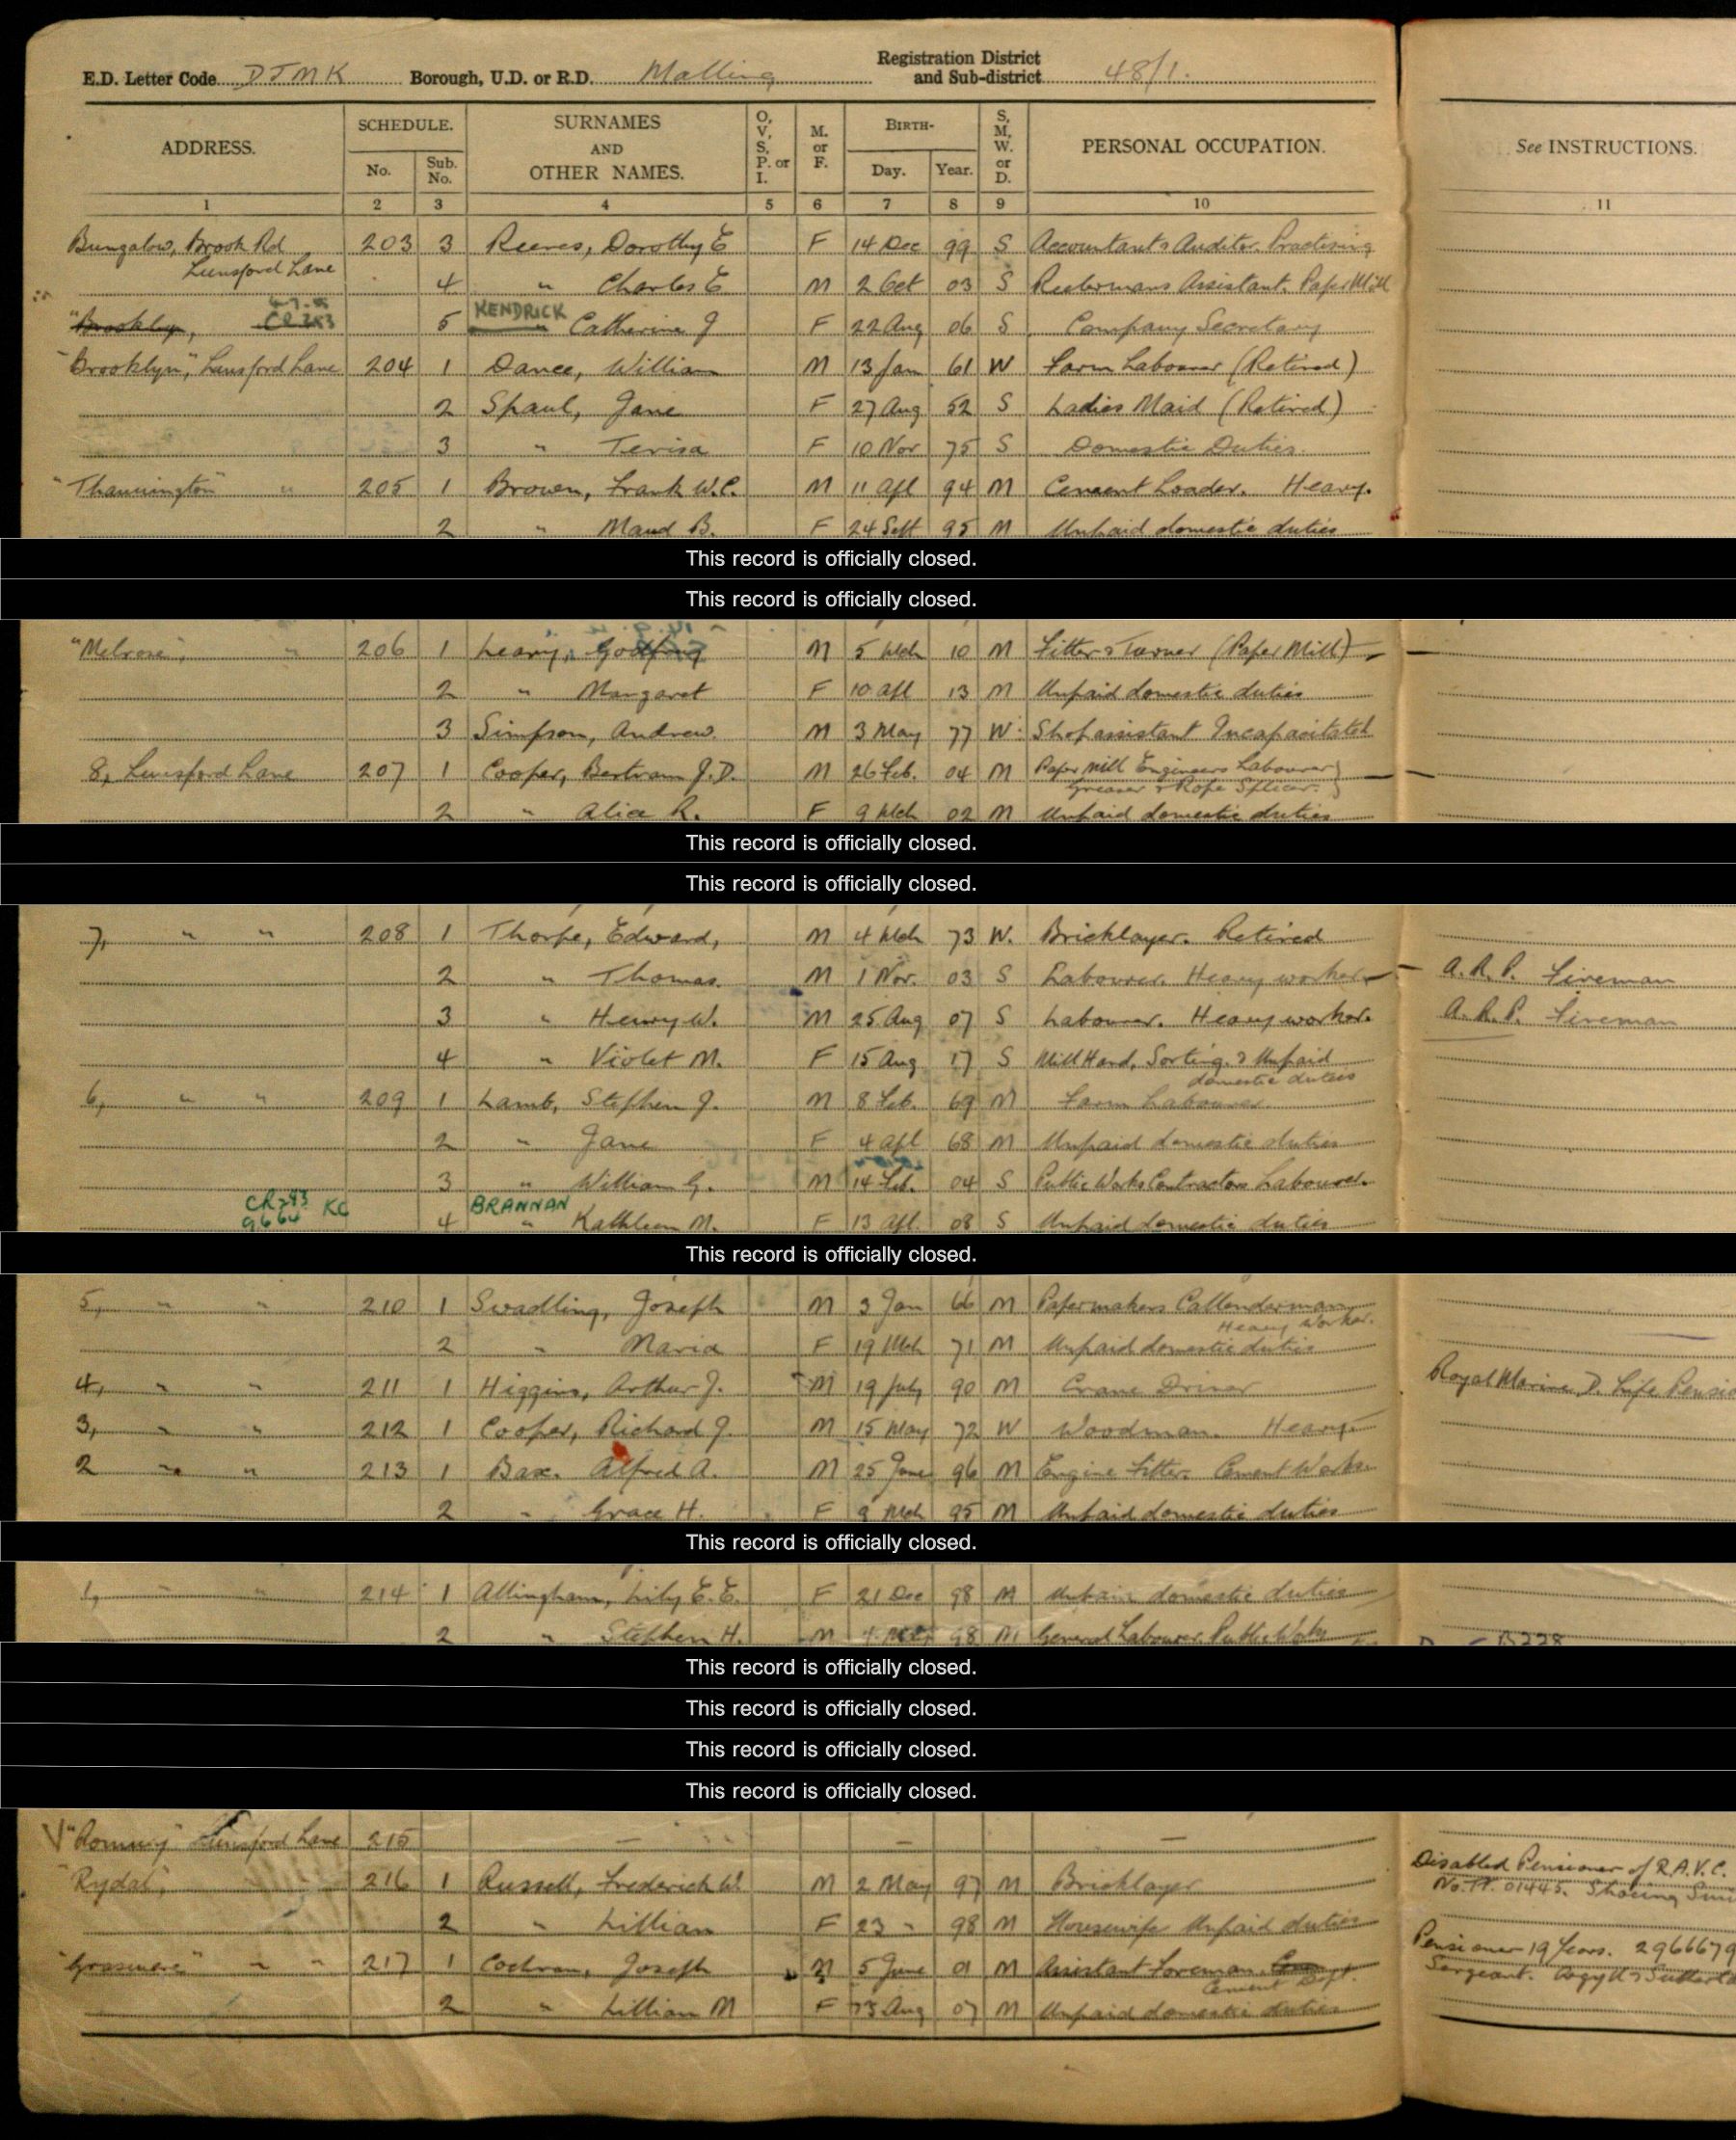 E.D. Letter Code DJMK Borough, U.D. or R.D. Malling Registration District and Sub-district 48/1.
ADDRESS. SCHEDULE. No. Sub. No. SURNAMES AND OTHER NAMES. O, V, S, P. or I. M. or F. BIRTH- Day. Year. S, M, W. or D. PERSONAL OCCUPATION. See INSTRUCTIONS.
1 2 3 4 5 6 7 8 9 10 11
Bungalow, Brook Rd 203 3 Reeves, Dorothy E F 14 Dec 99 S Accountant & Auditor Practising
Lunsford Lane
4 " Charles E M 2 Oct 03 S Reelermans Assistant. Paper Mill
KENDRICK
"Brooklyn, CR283 5 " Catherine J F 22 Aug 06 S Company Secretary
"Brooklyn", Lunsford Lane 204 1 Dance, William M 13 Jan 61 W Farm Labourer (Retired)
2 Spaul, Jane F 27 Aug 52 S Ladies Maid (Retired)
3 " Terisa F 10 Nov 75 S Domestic Duties.
"Thannington" " 205 1 Brown, Frank W.C. M 11 Apl 94 M Cement Loader. Heavy.
2 " Maud B. F 24 Sept 95 M Unpaid domestic duties
This record is officially closed.
This record is officially closed.
"Melrose", " 206 1 Leary, Godfrey M 5 Mch 10 M Fitter & Turner (Paper Mill)
2 " Margaret F 10 Apl 13 M Unpaid domestic duties
3 Simpson, Andrew. M 3 May 77 W Shop assistant Incapacitated
8, Lunsford Lane 207 1 Cooper, Bertram J.D. M 26 Feb. 04 M Paper Mill Engineers Labourer
Greaser & Rope Splicer.
2 " Alice R. F 9 Mch 02 M Unpaid domestic duties
This record is officially closed.
This record is officially closed.
7, " " 208 1 Thorpe, Edward, M 4 Mch 73 W. Bricklayer. Retired
2 " Thomas. M 1 Nov. 03 S Labourer. Heavy worker A.R.P. Fireman
3 " Henry W. M 25 Aug 07 S Labourer. Heavy worker. A.R.P. Fireman
4 " Violet M. F 15 Aug 17 S Mill Hand, Sorting. & Unpaid
domestic duties
6, " " 209 1 Lamb, Stephen J. M 8 Feb. 69 M Farm Labourer.
2 " Jane F 4 Apl 68 M Unpaid domestic duties
3 " William G. M 14 Feb. 04 S Public Works Contractors Labourer.
CR283 KC BRANNAN
4 " Kathleen M. F 13 Apl. 08 S Unpaid domestic duties
This record is officially closed.
5, " " 210 1 Swadling, Joseph M 3 Jan 66 M Papermakers Callenderman
Heavy Worker.
2 " Maria F 19 Mch 71 M Unpaid domestic duties
4, " " 211 1 Higgins, Arthur J. M 19 July 90 M Crane Driver Royal Marine D. Life Pensio
3, " 212 1 Cooper, Richard J. M 15 May 72 W Woodman. Heavy
2 " " 213 1 Bax. Alfred A. M 25 June 96 M Engine Fitter. Cement Works
2 " Grace H. F 9 Mch 95 M Unpaid domestic duties
This record is officially closed.
1, " " 214 1 Allingham, Lily E.E. F 21 Dec 98 M Unpaid domestic duties
2 " Stephen H. M 4 98 M General Labourer. Public Works
This record is officially closed.
This record is officially closed.
This record is officially closed.
This record is officially closed.
V "Romney" Lunsford Lane 215 — — —
"Rydal", 216 1 Russell, Frederick W. M 2 May 97 M Bricklayer Disabled Pensioner of R.A.V.C.
2 " Lillian F 23 " 98 M Housewife Unpaid duties
"Grasmere" " " 217 1 Cochran, Joseph M 5 June 01 M Assistant Foreman Pensioner 19 Years. 2966679
Cement Dept. Sergeant.
2 " Lillian M F 23 Aug 07 M Unpaid domestic duties